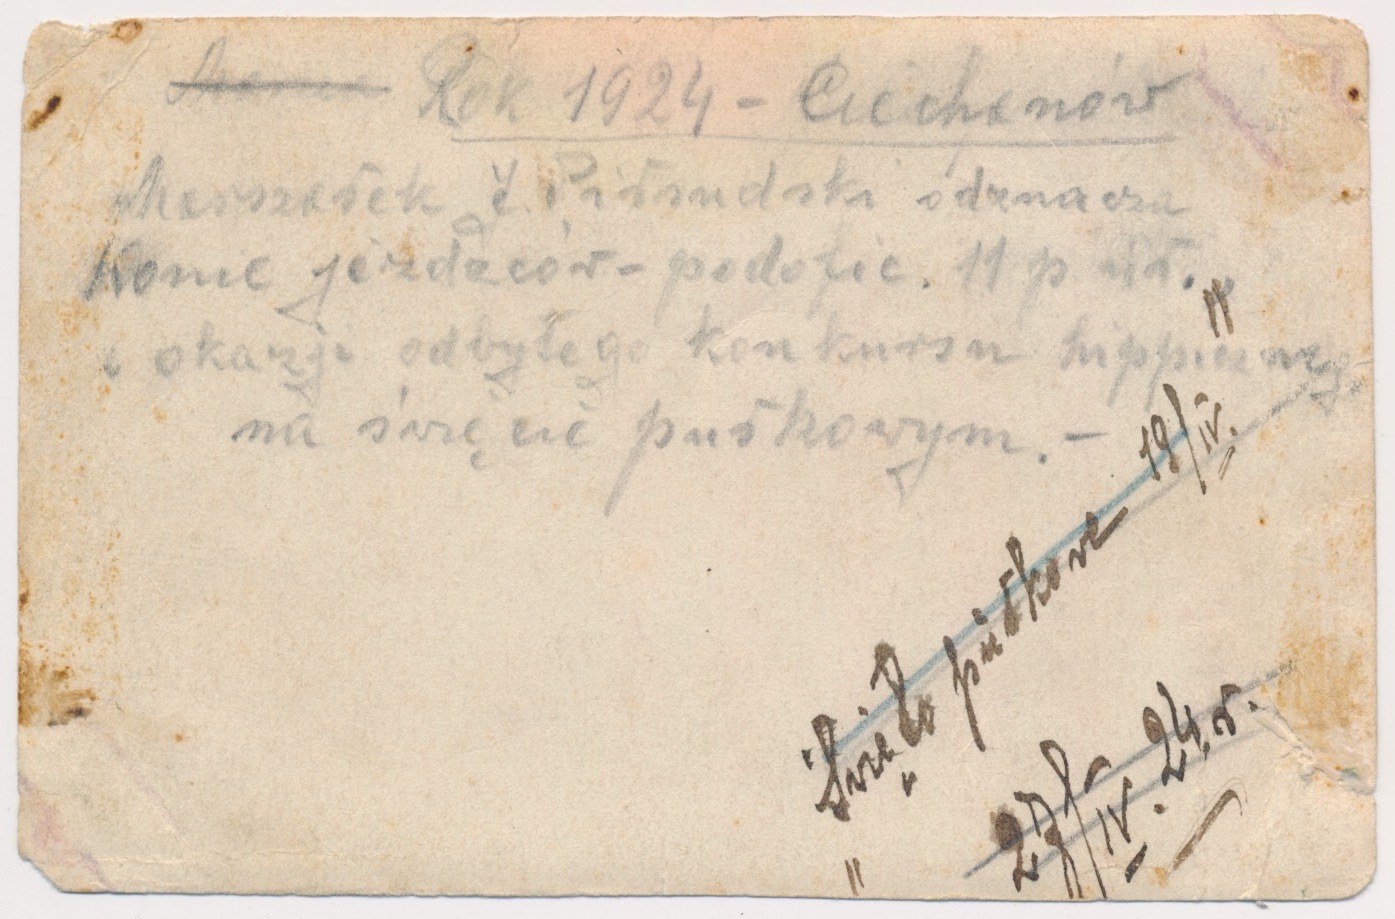 Rok 1924 - Ciechanów
Marszałek J. Piłsudski odznacza
konie jeźdźców - podofic. 11 p uł.
z okazji odbytego konkursu hippiczneg
na święcie pułkowym. -
"Święto pułkowe 18/IV."
27/IV. 24 r.